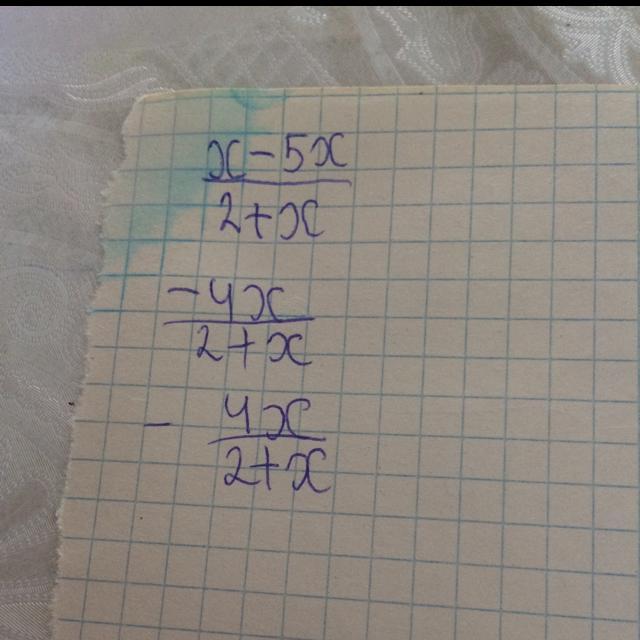 x - 5x
2 + x
-4x
2 + x
- 4x
2 + x